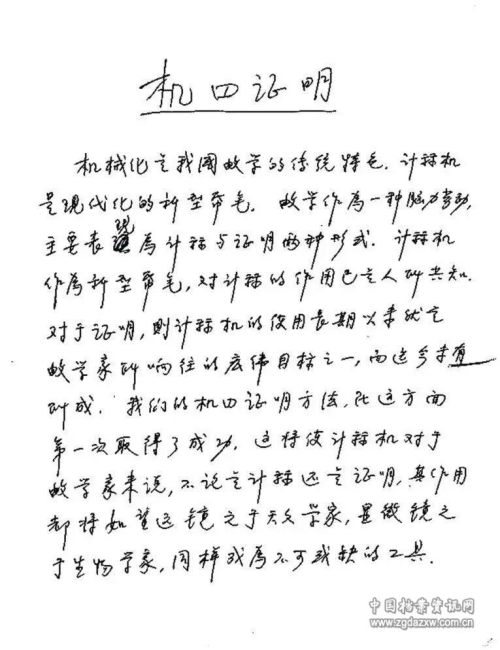 机四证明
机械化是我国数学的传统特色. 计标机
是现代化的新型帚毛. 数学作为一种脑力劳动,
主要表现为计标与证明两种形式. 计标机
作为新型帚毛, 对计标的作用已是人所共知.
对于证明, 则计标机的使用长期以来就是
数学家所响往的宏伟目标之一, 而迄今未有
所成. 我们的机四证明方法, 在这方面
第一次取得了成功. 这将使计标机对于
数学家来说, 不论是计标还是证明, 其作用
都将如望远镜之于天文学家, 显微镜之
于生物学家, 同样成为不可或缺的工具.
中国档案资讯网
www.zgdazxw.com.cn